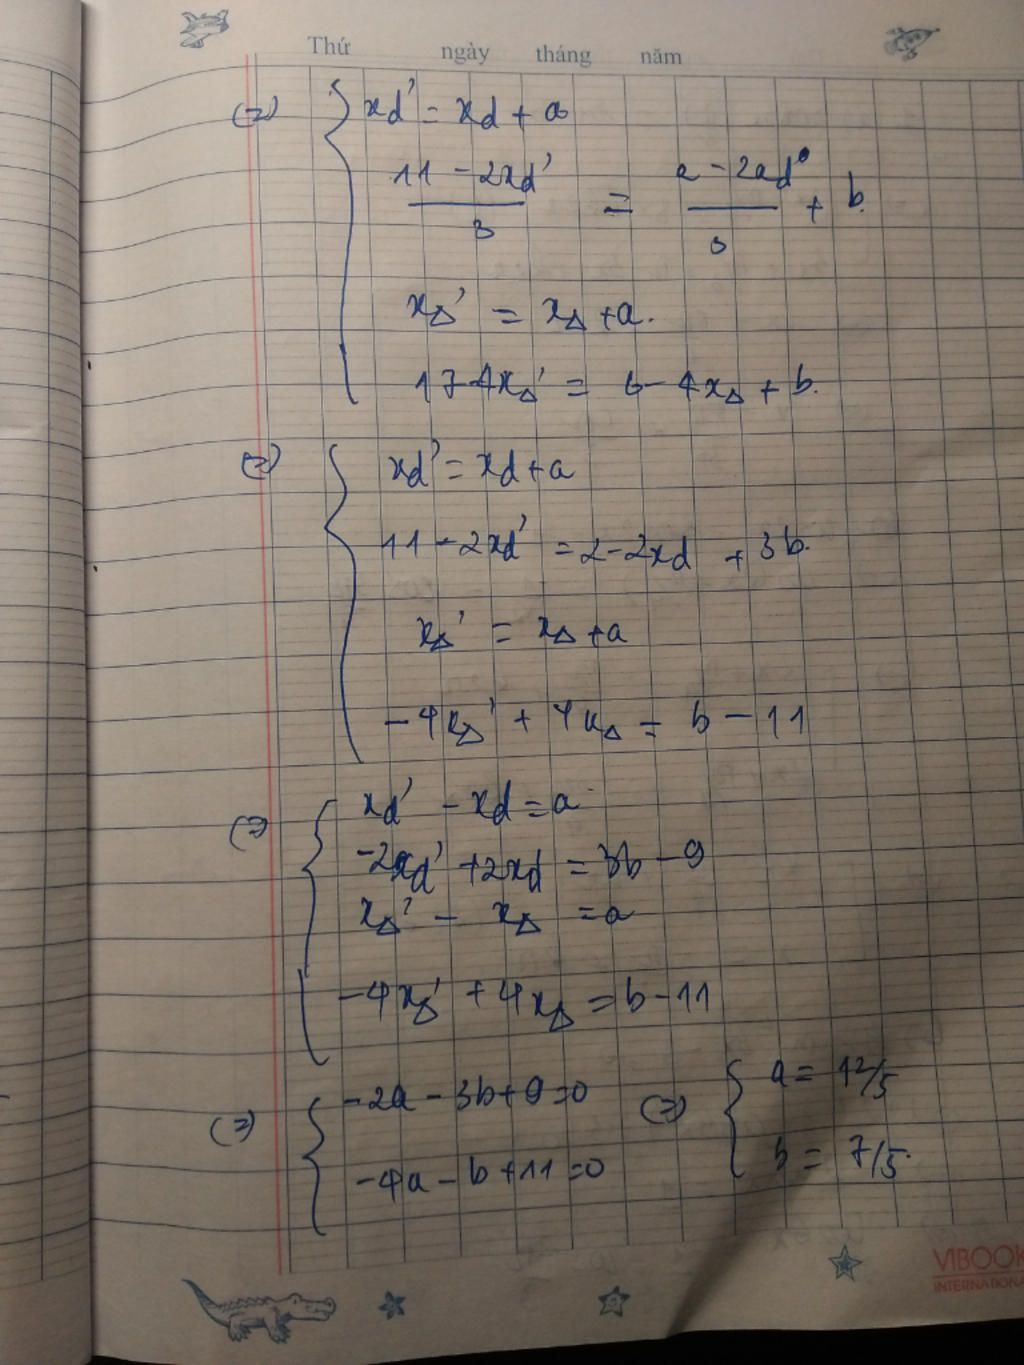 Thứ ngày tháng năm
(=) { xd' = xd + a
(11 - 2xd')/3 = (a - 2ad)/3 + b.
xΔ' = xΔ + a.
17 - 4xΔ' = 6 - 4xΔ + b.
(=) { xd' = xd + a
11 - 2xd' = 2 - 2xd + 3b.
xΔ' = xΔ + a
-4xΔ' + 4xΔ = b - 11
(=) { xd' - xd = a
-2xd' + 2xd = 3b - 9
xΔ' - xΔ = a
-4xΔ' + 4xΔ = b - 11
(=) { -2a - 3b + 9 = 0 (=) { a = 12/5
-4a - b + 11 = 0 b = 7/5.
VIBOOK
INTERNATIONA